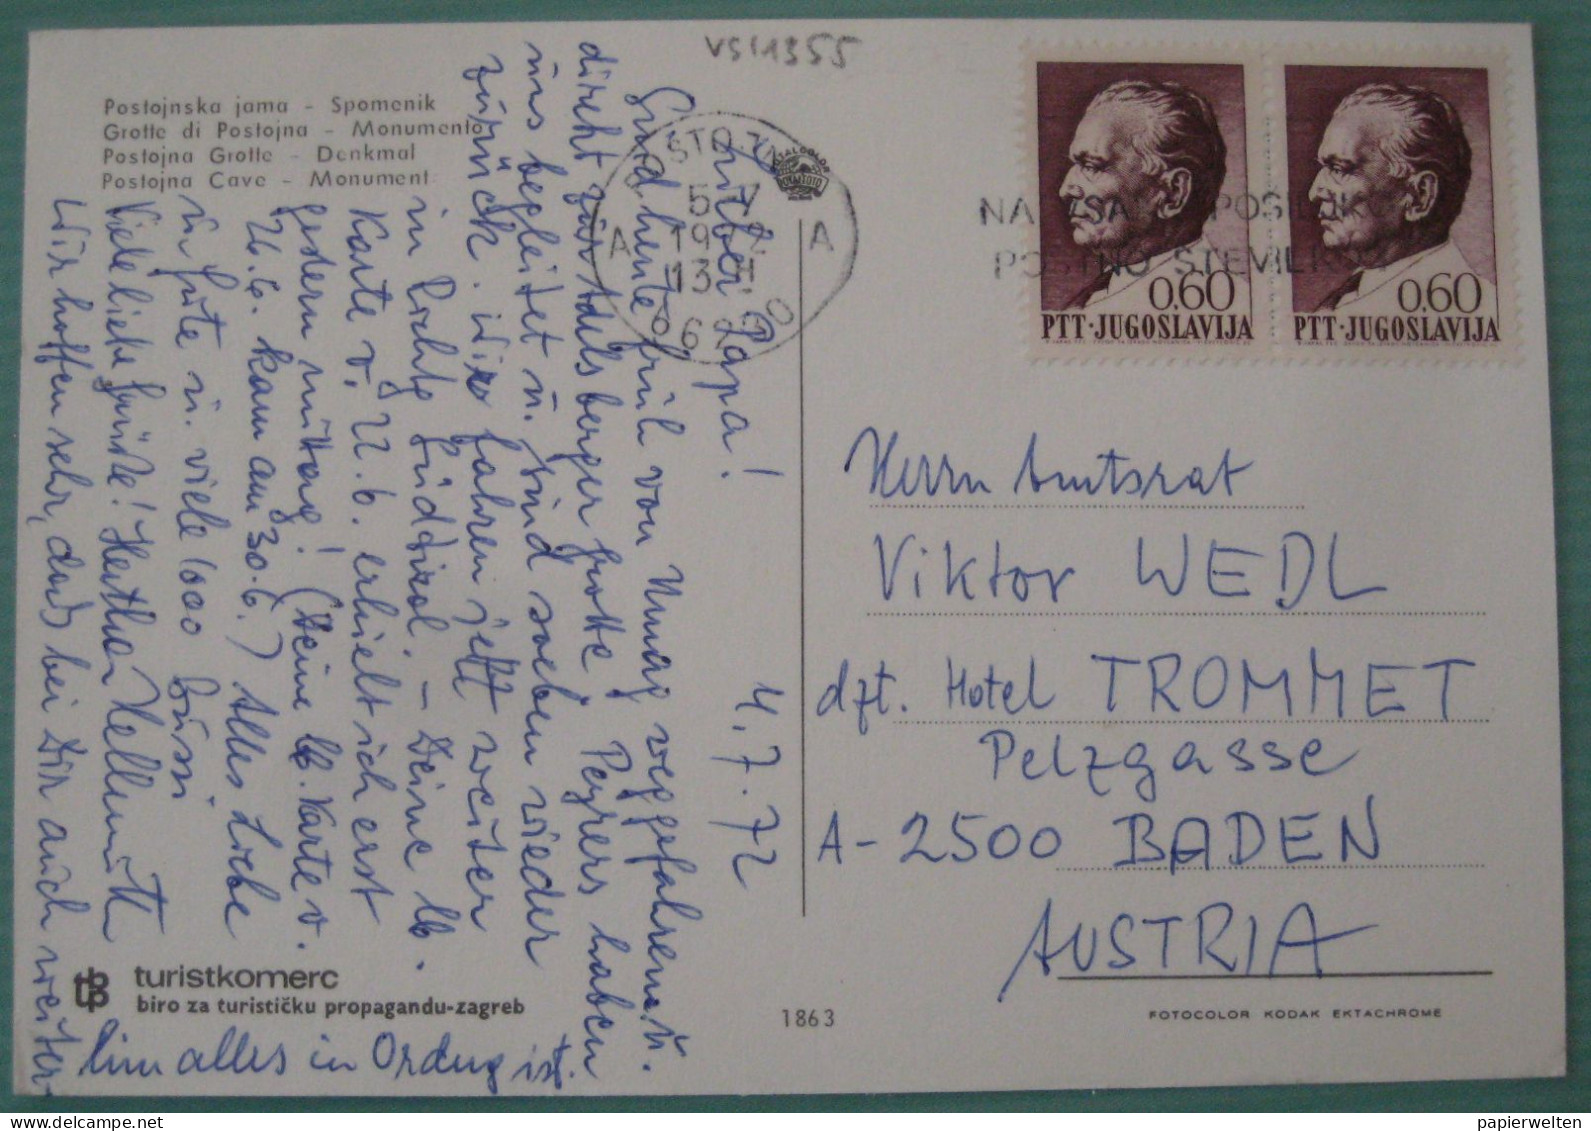 VSI1355
Postojnska jama - Spomenik
Grotte di Postojna - Monumento
Postojna Grotte - Denkmal
Postojna Cave - Monument
4.7.72
Lieber Papa!
Sind heute früh von Umag weggefahren u.
direkt zur Adelsberger Grotte. Peyrers haben
uns begleitet u. sind soeben wieder
zurück. Wir fahren jetzt weiter
in Richtg Südtirol. - Deine lb.
Karte v. 22.6. erhielt ich erst
gestern mittag! (Deine lb. Karte v.
26.6. kam am 30.6.) Alles Liebe
u. Gute u. viele 1000 Bussi
Viele liebe Grüße! Hertha Hellmuth
Wir hoffen sehr, dass bei Dir auch weiter-
hin alles in Ordng ist.
A A
5. 7
19
13
6
PTT·JUGOSLAVIJA
0.60
PTT·JUGOSLAVIJA
0.60
Herrn Amtsrat
Viktor WEDL
dzt. Hotel TROMMET
Pelzgasse
A-2500 BADEN
AUSTRIA
turistkomerc
biro za turističku propagandu-zagreb
1863
FOTOCOLOR KODAK EKTACHROME
papierwelten